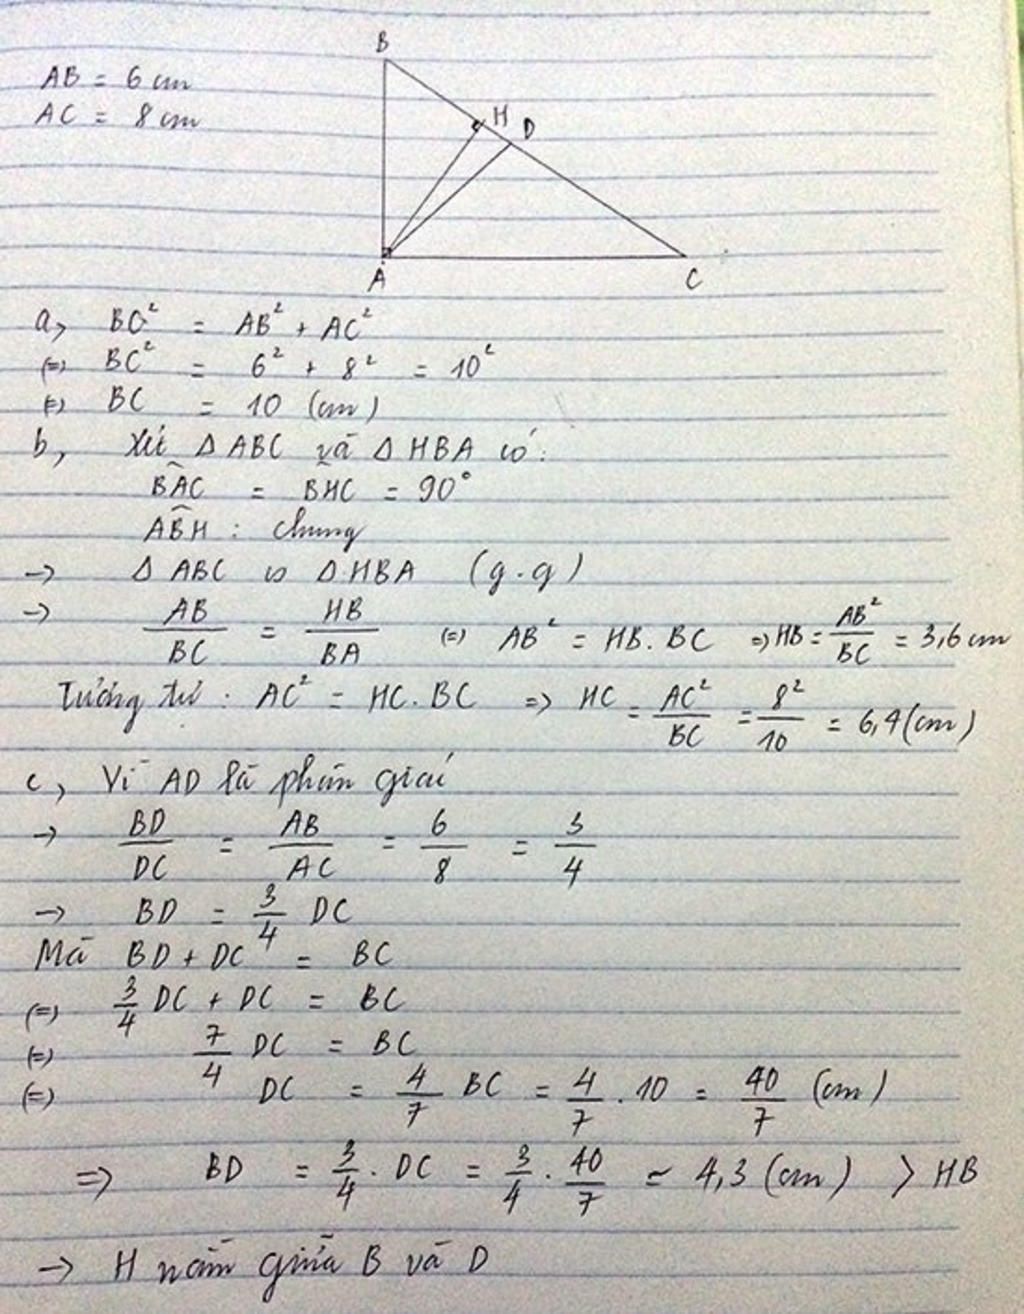 AB = 6 cm
AC = 8 cm
B
H
D
A
C
a, BC² = AB² + AC²
(=) BC² = 6² + 8² = 10²
(=) BC = 10 (cm)
b, Xét Δ ABC và Δ HBA có:
BÂC = BĤC = 90°
AB̂H : chung
→ Δ ABC ∽ Δ HBA (g.g)
→ AB/BC = HB/BA (=) AB² = HB. BC => HB = AB²/BC = 3,6 cm
Tương tự : AC² = HC. BC => HC = AC²/BC = 8²/10 = 6,4 (cm)
c, Vì AD là phân giác
→ BD/DC = AB/AC = 6/8 = 3/4
→ BD = 3/4 DC
Mà BD + DC = BC
(=) 3/4 DC + DC = BC
(=) 7/4 DC = BC
(=) DC = 4/7 BC = 4/7 . 10 = 40/7 (cm)
=> BD = 3/4 . DC = 3/4 . 40/7 ≈ 4,3 (cm) > HB
→ H nằm giữa B và D